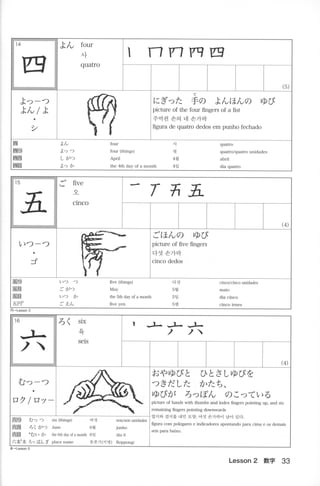 14
四
よん four
사
quatro
(5)
よっーつ
よん / よ
•
シ
にぎった 手の よんほんの ゆび
て
picture of the four fingers of a fist
주먹쥔 손의 네 손가락
figura de quatro dedos em punho fechado
よん four 사 quatro
よっ つ four (things) 넷 quatro/quatro unidades
し がつ April 4월 abril
よっ か the 4th day of a month 4일 dia quatro
15
五
ご five
오
cinco
(4)
いつーつ
•
ゴ
ごほんの ゆび
picture of five fingers
다섯 손가락
cinco dedos
いつ つ five (things) 다섯 cinco/cinco unidades
ご がつ May 5월 maio
いつ か the 5th day of a month 5일 dia cinco
ご えん five yen 5엔 cinco ienes
16
六
ろく six
육
seis
(4)
むっーつ
•
ロク / ロッー
おやゆびと ひとさしゆびを
つきだした かたち、
ゆびが ろっぽん のこっている
picture of hands with thumbs and index fingers pointing up, and six
remaining fingers pointing downwards
figura com polegares e indicadores apontando para cima e os demais
seis para baixo
むっ つ six (things) 여섯 seis/seis unidades
ろく がつ June 6월 junho
むい か the 6th day of a month 6일 dia 6
ろっ ぽん ぎ place name Roppongi
Lesson 2 数字 33